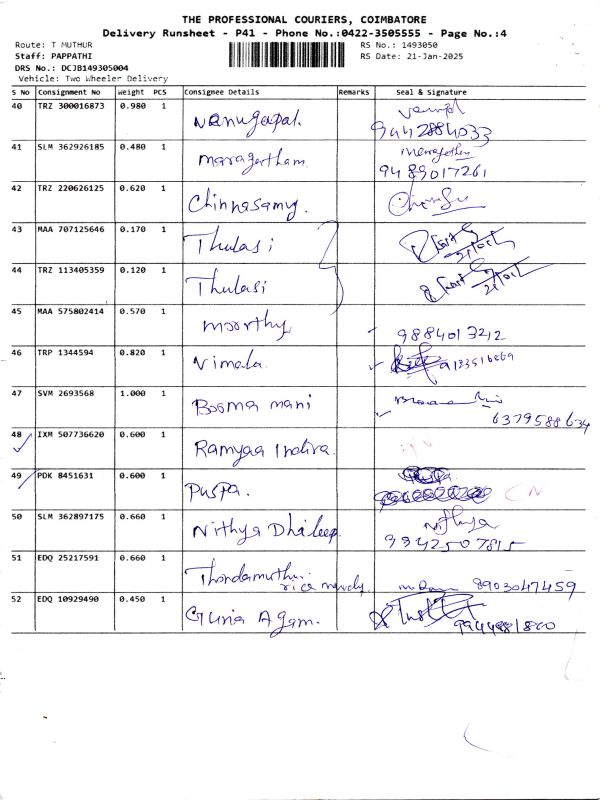 THE PROFESSIONAL COURIERS, COIMBATORE
Delivery Runsheet - P41 - Phone No.:0422-3505555 - Page No.:4
Route: T MUTHUR RS No.: 1493050
Staff: PAPPATHI RS Date: 21-Jan-2025
DRS No.: DCJB149305004
Vehicle: Two Wheeler Delivery
S No Consignment No Weight PCS Consignee Details Remarks Seal & Signature
40 TRZ 300016873 0.980 1 Venugapal.
9442884033
41 SLM 362926185 0.480 1 Maragatham
9489017261
42 TRZ 220626125 0.620 1 Chinnasamy.
43 MAA 707125646 0.170 1 Thulasi
44 TRZ 113405359 0.120 1 Thulasi
45 MAA 575802414 0.570 1 Moorthy 9884013212
46 TRP 1344594 0.820 1 Nimala
47 SVM 2693568 1.000 1 Booma mani
6379588634
48 IXM 507736620 0.600 1 Ramyaa Indira.
49 PDK 8451631 0.600 1 Puspa. CN
50 SLM 362897175 0.660 1 Nithya Dhileep Nithya
9942507815
51 EDQ 25217591 0.660 1 rice mandy. 8903047459
52 EDQ 10929490 0.450 1 Guna Agam.